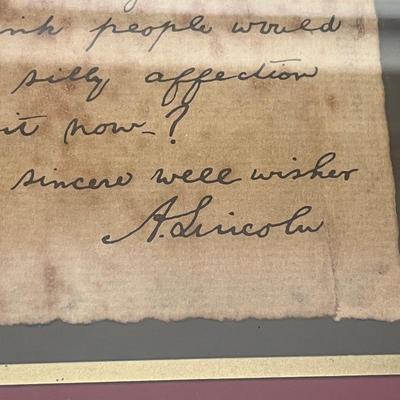 ink people would
silly affection
it now_?
sincere well wisher
A. Lincoln